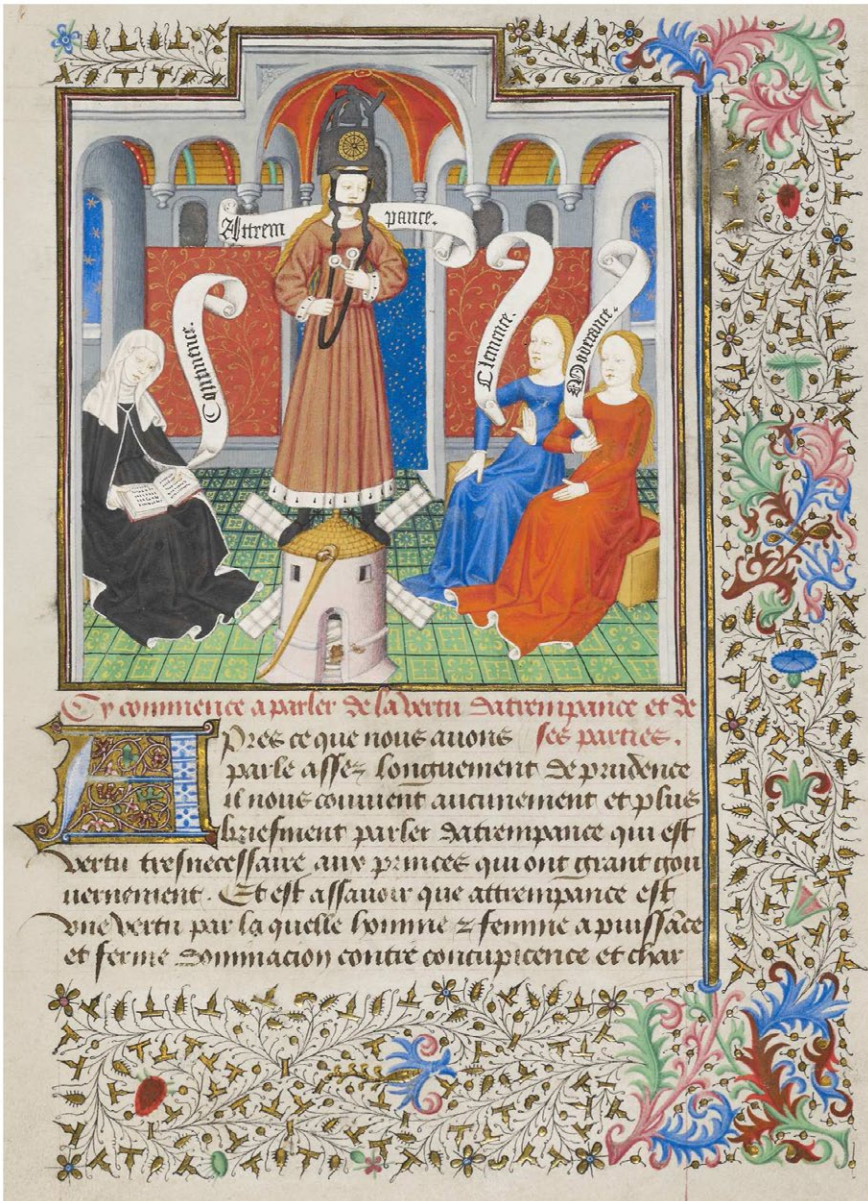 Attrem pance.
Continence.
Clemence.
Moderance.
Cy commence a parler de la vertu datrempance et de
ses parties.
Apres ce que nous auons
parle assez longuement de prudence
il nous conuient aucunement et plus
briefment parler datrempance qui est
vertu tresnecessaire aux princes qui ont grant gou
uernement. Et est assauoir que attrempance est
vne vertu par la quelle homme ⁊ femme a puissãce
et ferme dominacion contre concupicence et char